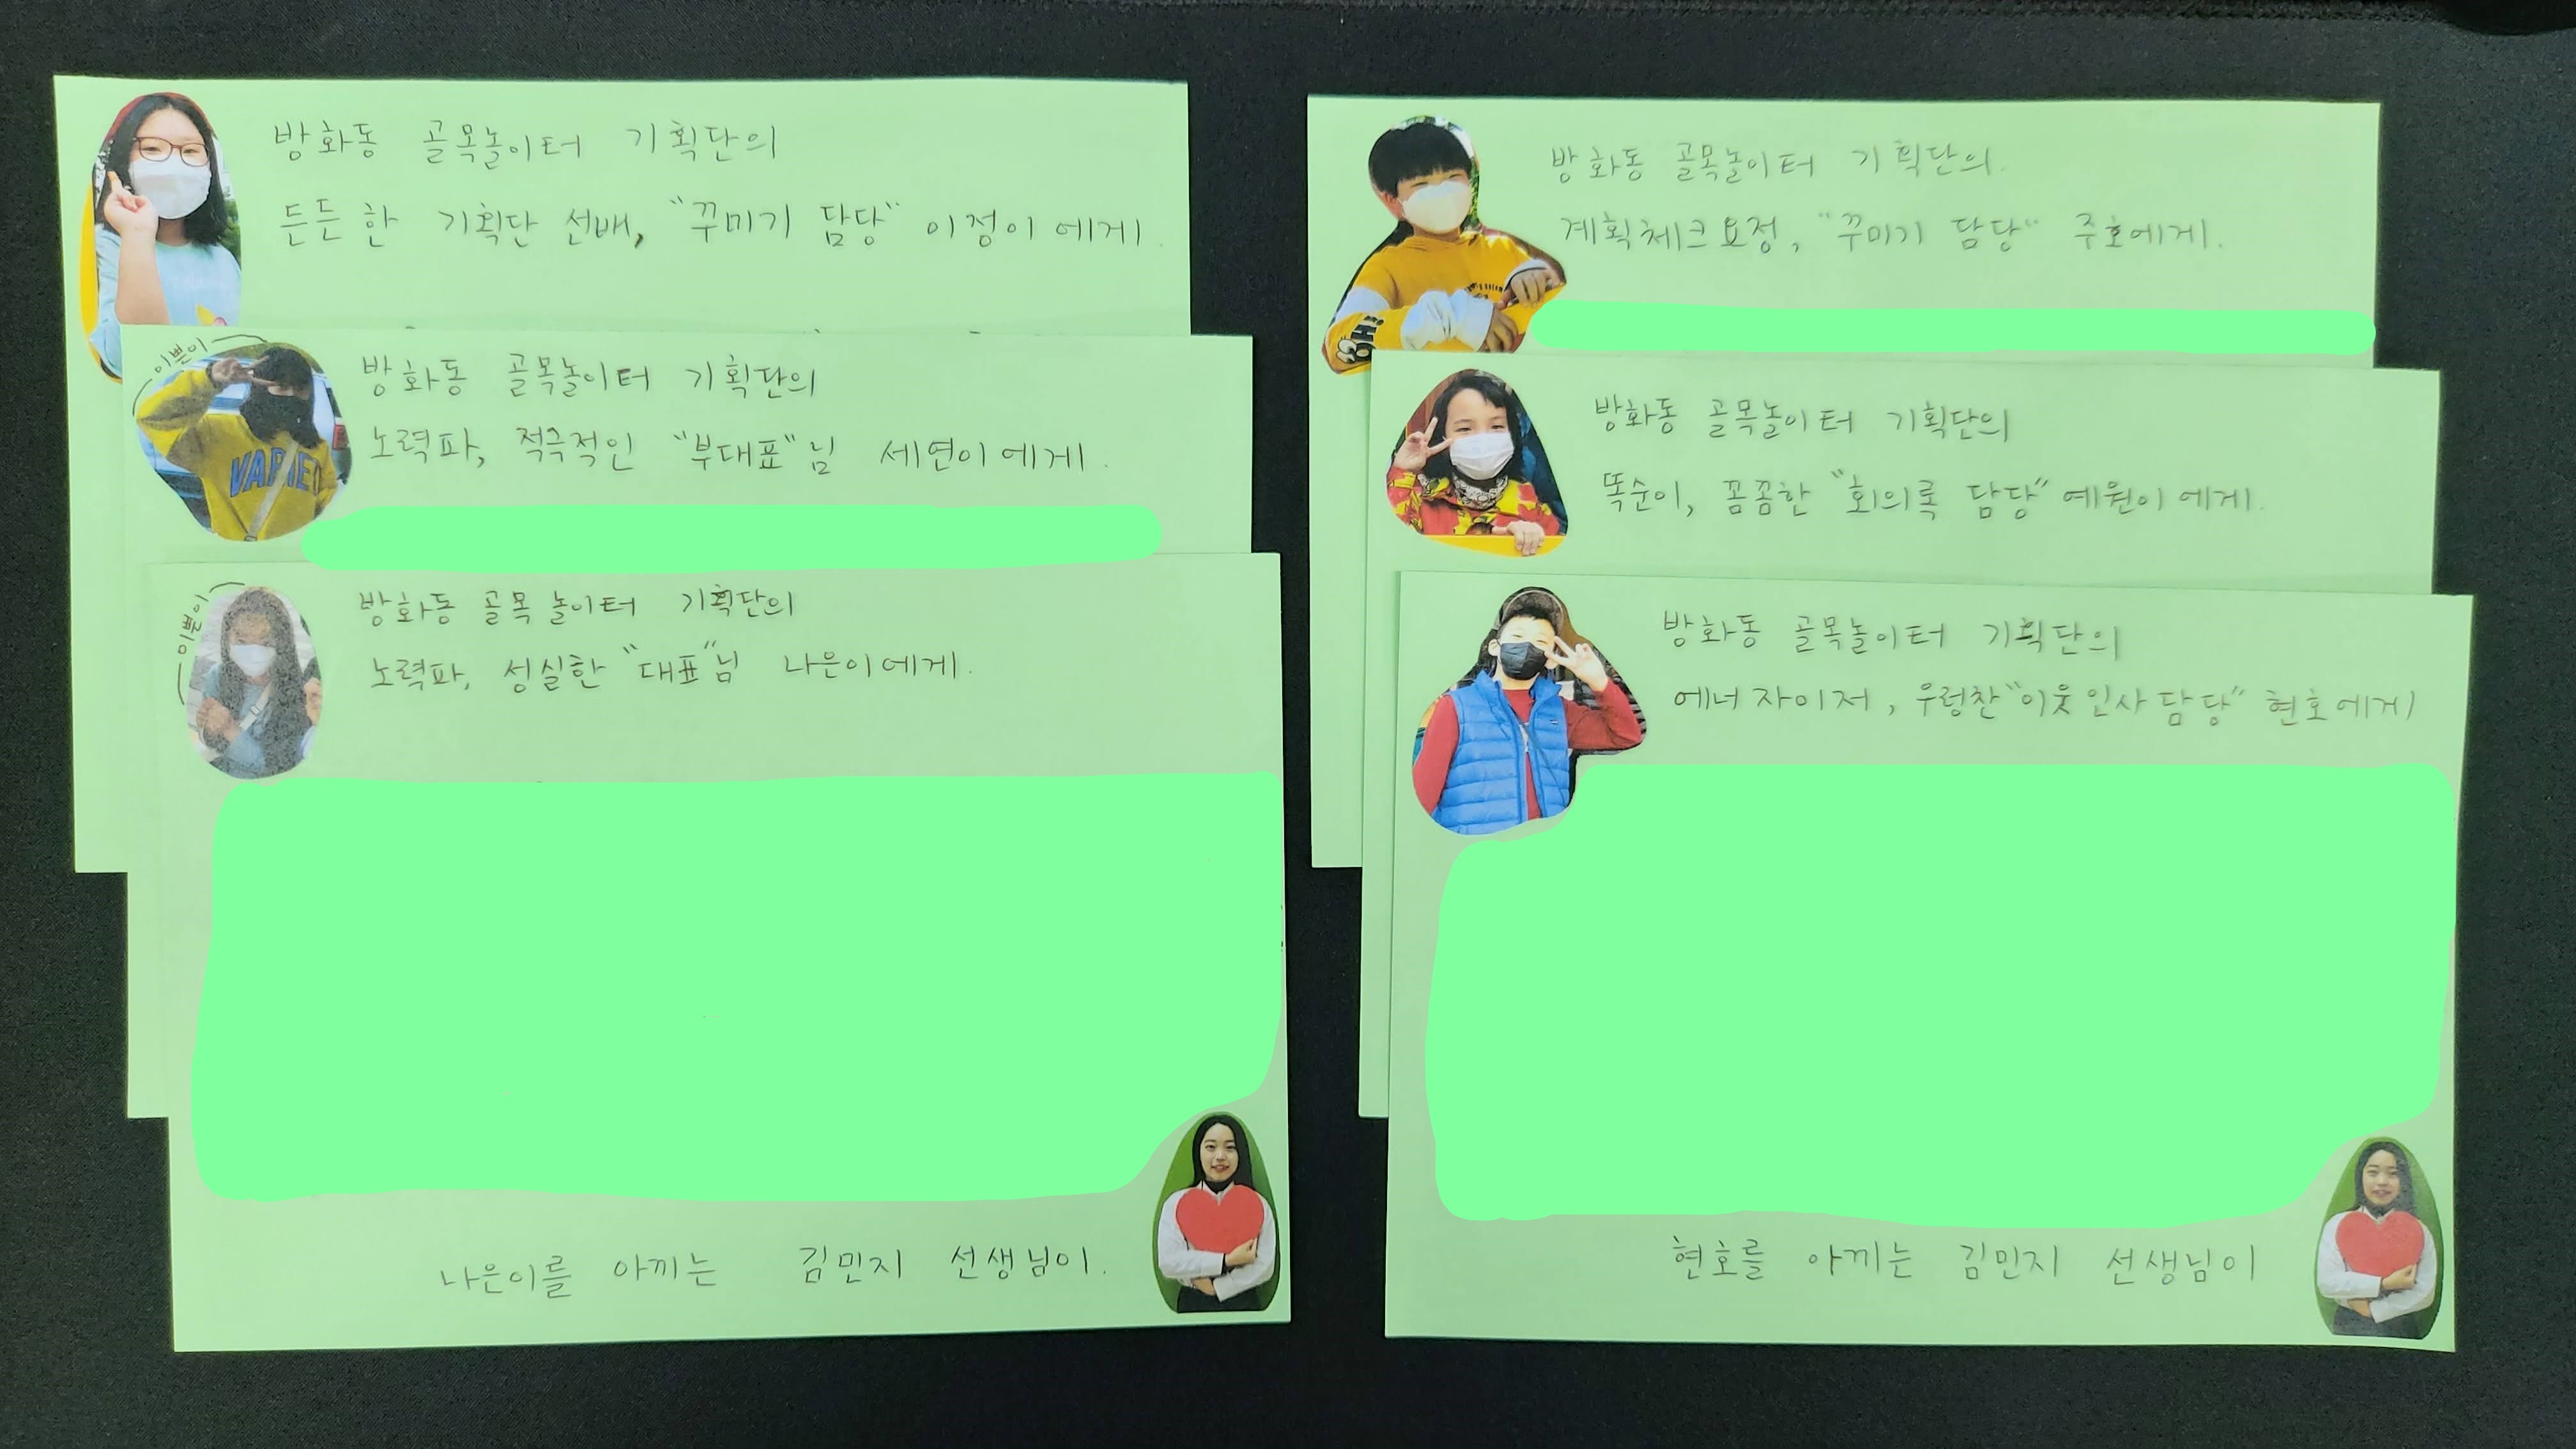 방화동 골목놀이터 기획단의
든든한 기획단 선배, "꾸미기 담당" 이정이에게.
이쁜이
방화동 골목놀이터 기획단의
노력파, 적극적인 "부대표"님 세연이에게.
VARIET
이쁜이
방화동 골목놀이터 기획단의
노력파, 성실한 "대표"님 나은이에게.
나은이를 아끼는 김민지 선생님이.
방화동 골목놀이터 기획단의.
계획체크요정, "꾸미기 담당" 주호에게.
OH!
방화동 골목놀이터 기획단의
똑순이, 꼼꼼한 "회의록 담당" 예원이에게.
방화동 골목놀이터 기획단의
에너자이저, 우렁찬 "이웃인사담당" 현호에게
현호를 아끼는 김민지 선생님이